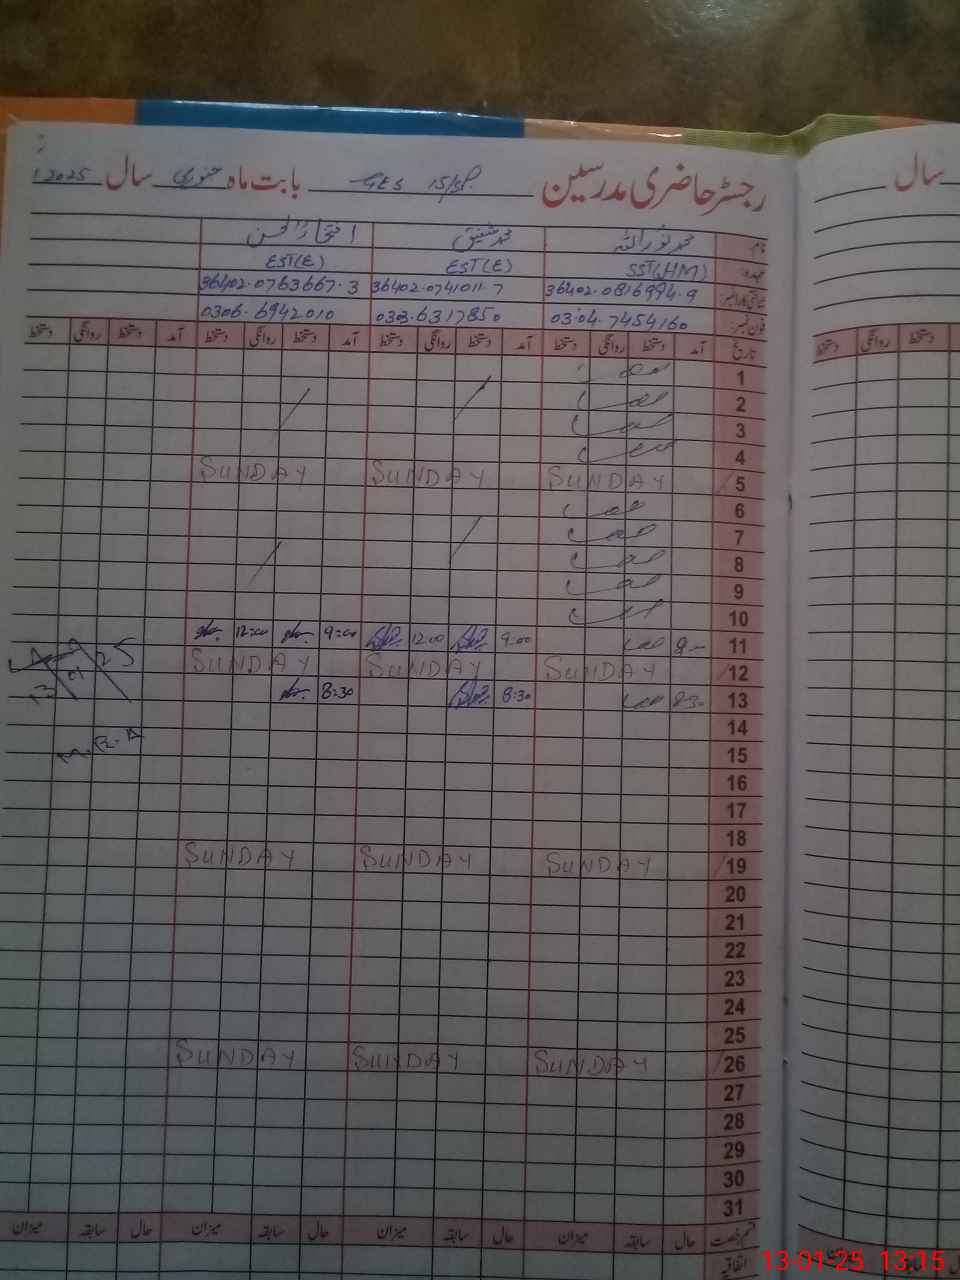 رجسٹر حاضری مدرسین GES 15/SP. بابت ماہ جنوری سال 2025
سال
نام محمد نور اللہ محمد شفیق افتخار الحسن
عہدہ SST(HM) EST(E) EST(E)
شناختی کارڈ نمبر: 36402-0816994-9 36402-0741011-7 36402-0763667-3
فون نمبر: 0304-7454160 0303-6317850 0306-6942010
تاریخ آمد دستخط روانگی دستخط آمد دستخط روانگی دستخط آمد دستخط روانگی دستخط آمد دستخط روانگی دستخط
دستخط روانگی دستخط
1
2
3
4
5 SUNDAY SUNDAY SUNDAY
6
7
8
9
10
11 9:00 12:00 9:00 12:00
12 SUNDAY SUNDAY SUNDAY
13 830 8:30 8:30
14
M.E.A
15
16
17
18
19 SUNDAY SUNDAY SUNDAY
20
21
22
23
24
25
26 SUNDAY SUNDAY SUNDAY
27
28
29
30
31
قسم رخصت حال سابقہ میزان حال سابقہ میزان حال سابقہ میزان حال سابقہ میزان
اتفاقیہ
13-01-25 13:15